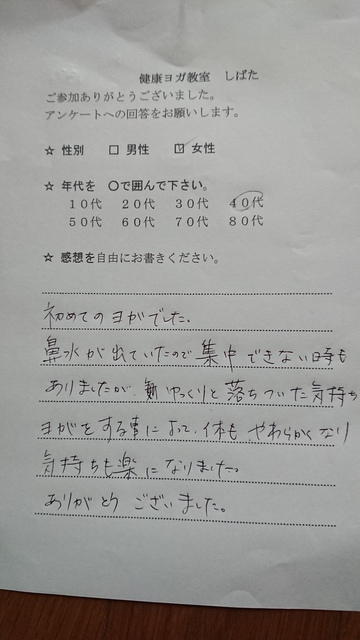 健康ヨガ教室 しばた
ご参加ありがとうございました。
アンケートへの回答をお願いします。
☆ 性別 □ 男性 ☑ 女性
☆ 年代を ○で囲んで下さい。
10代 20代 30代 40代
50代 60代 70代 80代
☆ 感想を自由にお書きください。
初めてのヨガでした。
鼻水が出ていたので集中できない時も
ありましたが、ゆっくりと落ちついた気持ち
ヨガをする事によって、体も やわらかくなり
気持ちも楽になりました。
ありがとうございました。